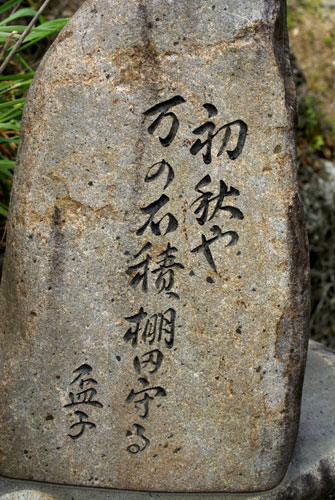 初秋や
万の石積棚田守る
孟子